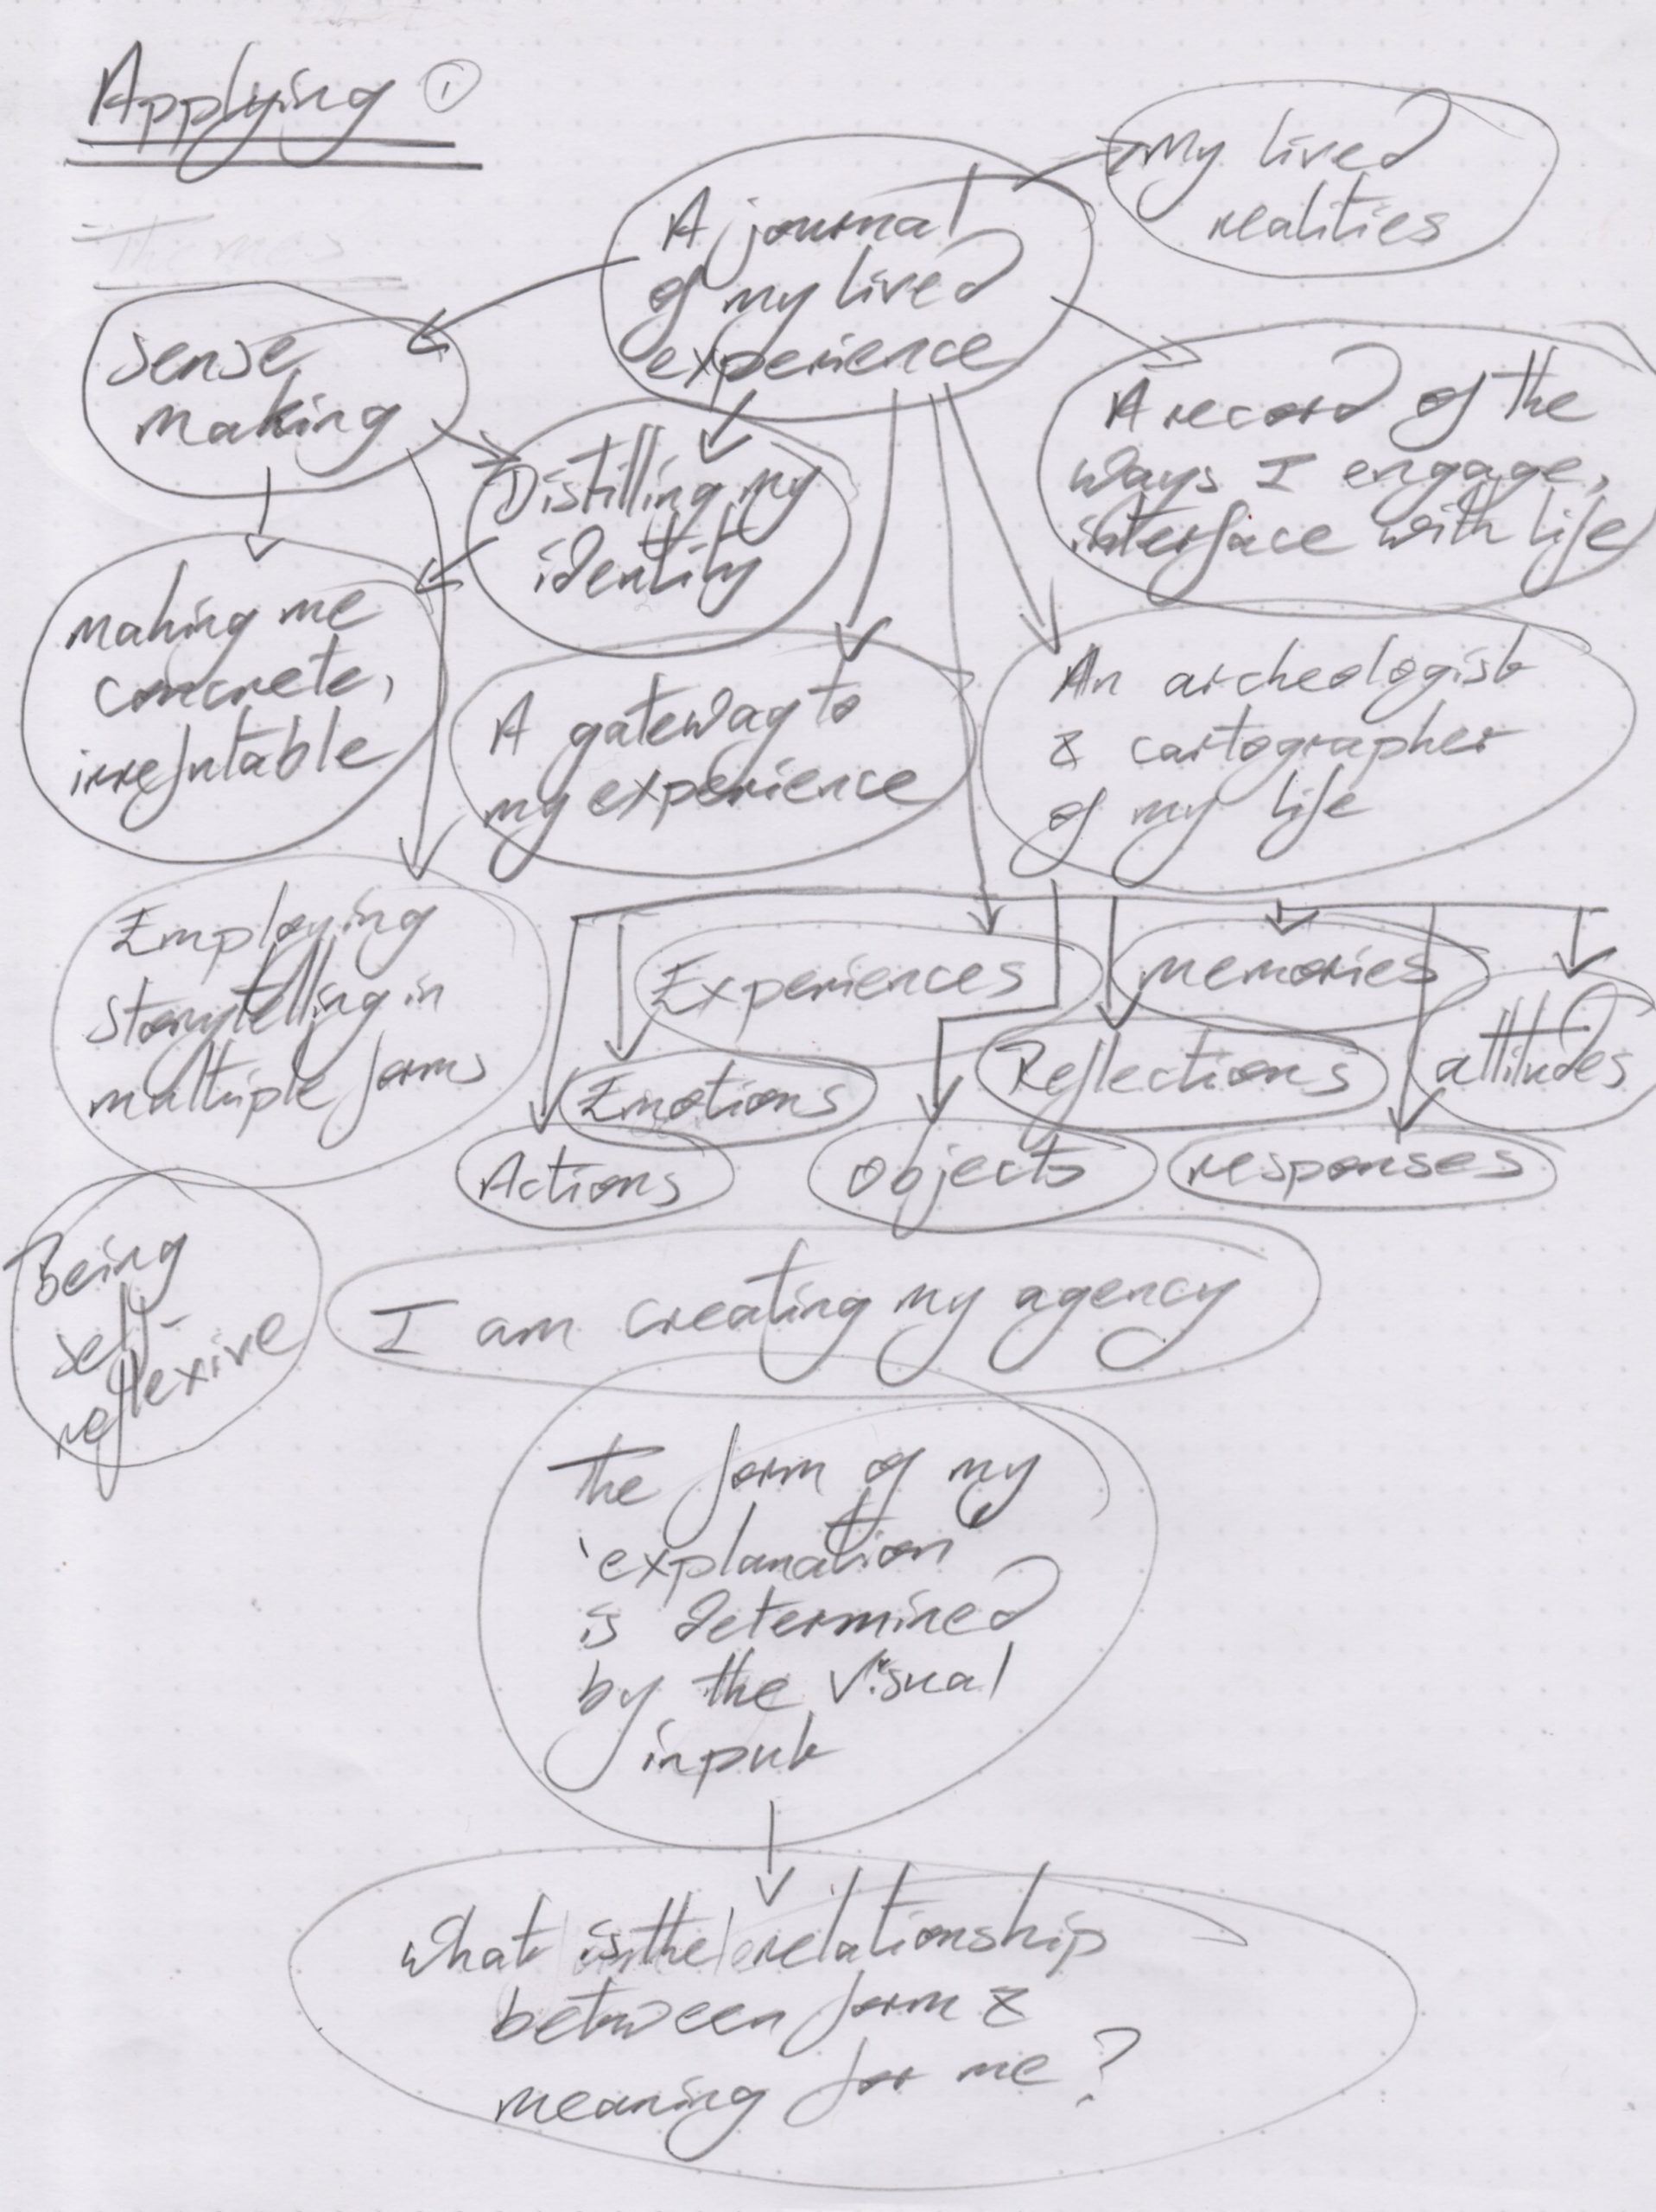 Applying ①
Themes
My lived
realities
A journal
of my lived
experience
Sense
making
Distilling my
identity
A record of the
ways I engage,
interface with life
making me
concrete,
irrefutable
A gateway to
my experience
An archeologist
& cartographer
of my life
Employing
storytelling in
multiple forms
Experiences
memories
Emotions
Reflections
attitudes
Actions
objects
responses
Being
self-
reflexive
I am creating my agency
The form of my
'explanation'
is determined
by the visual
input
What is the relationship
between form &
meaning for me?